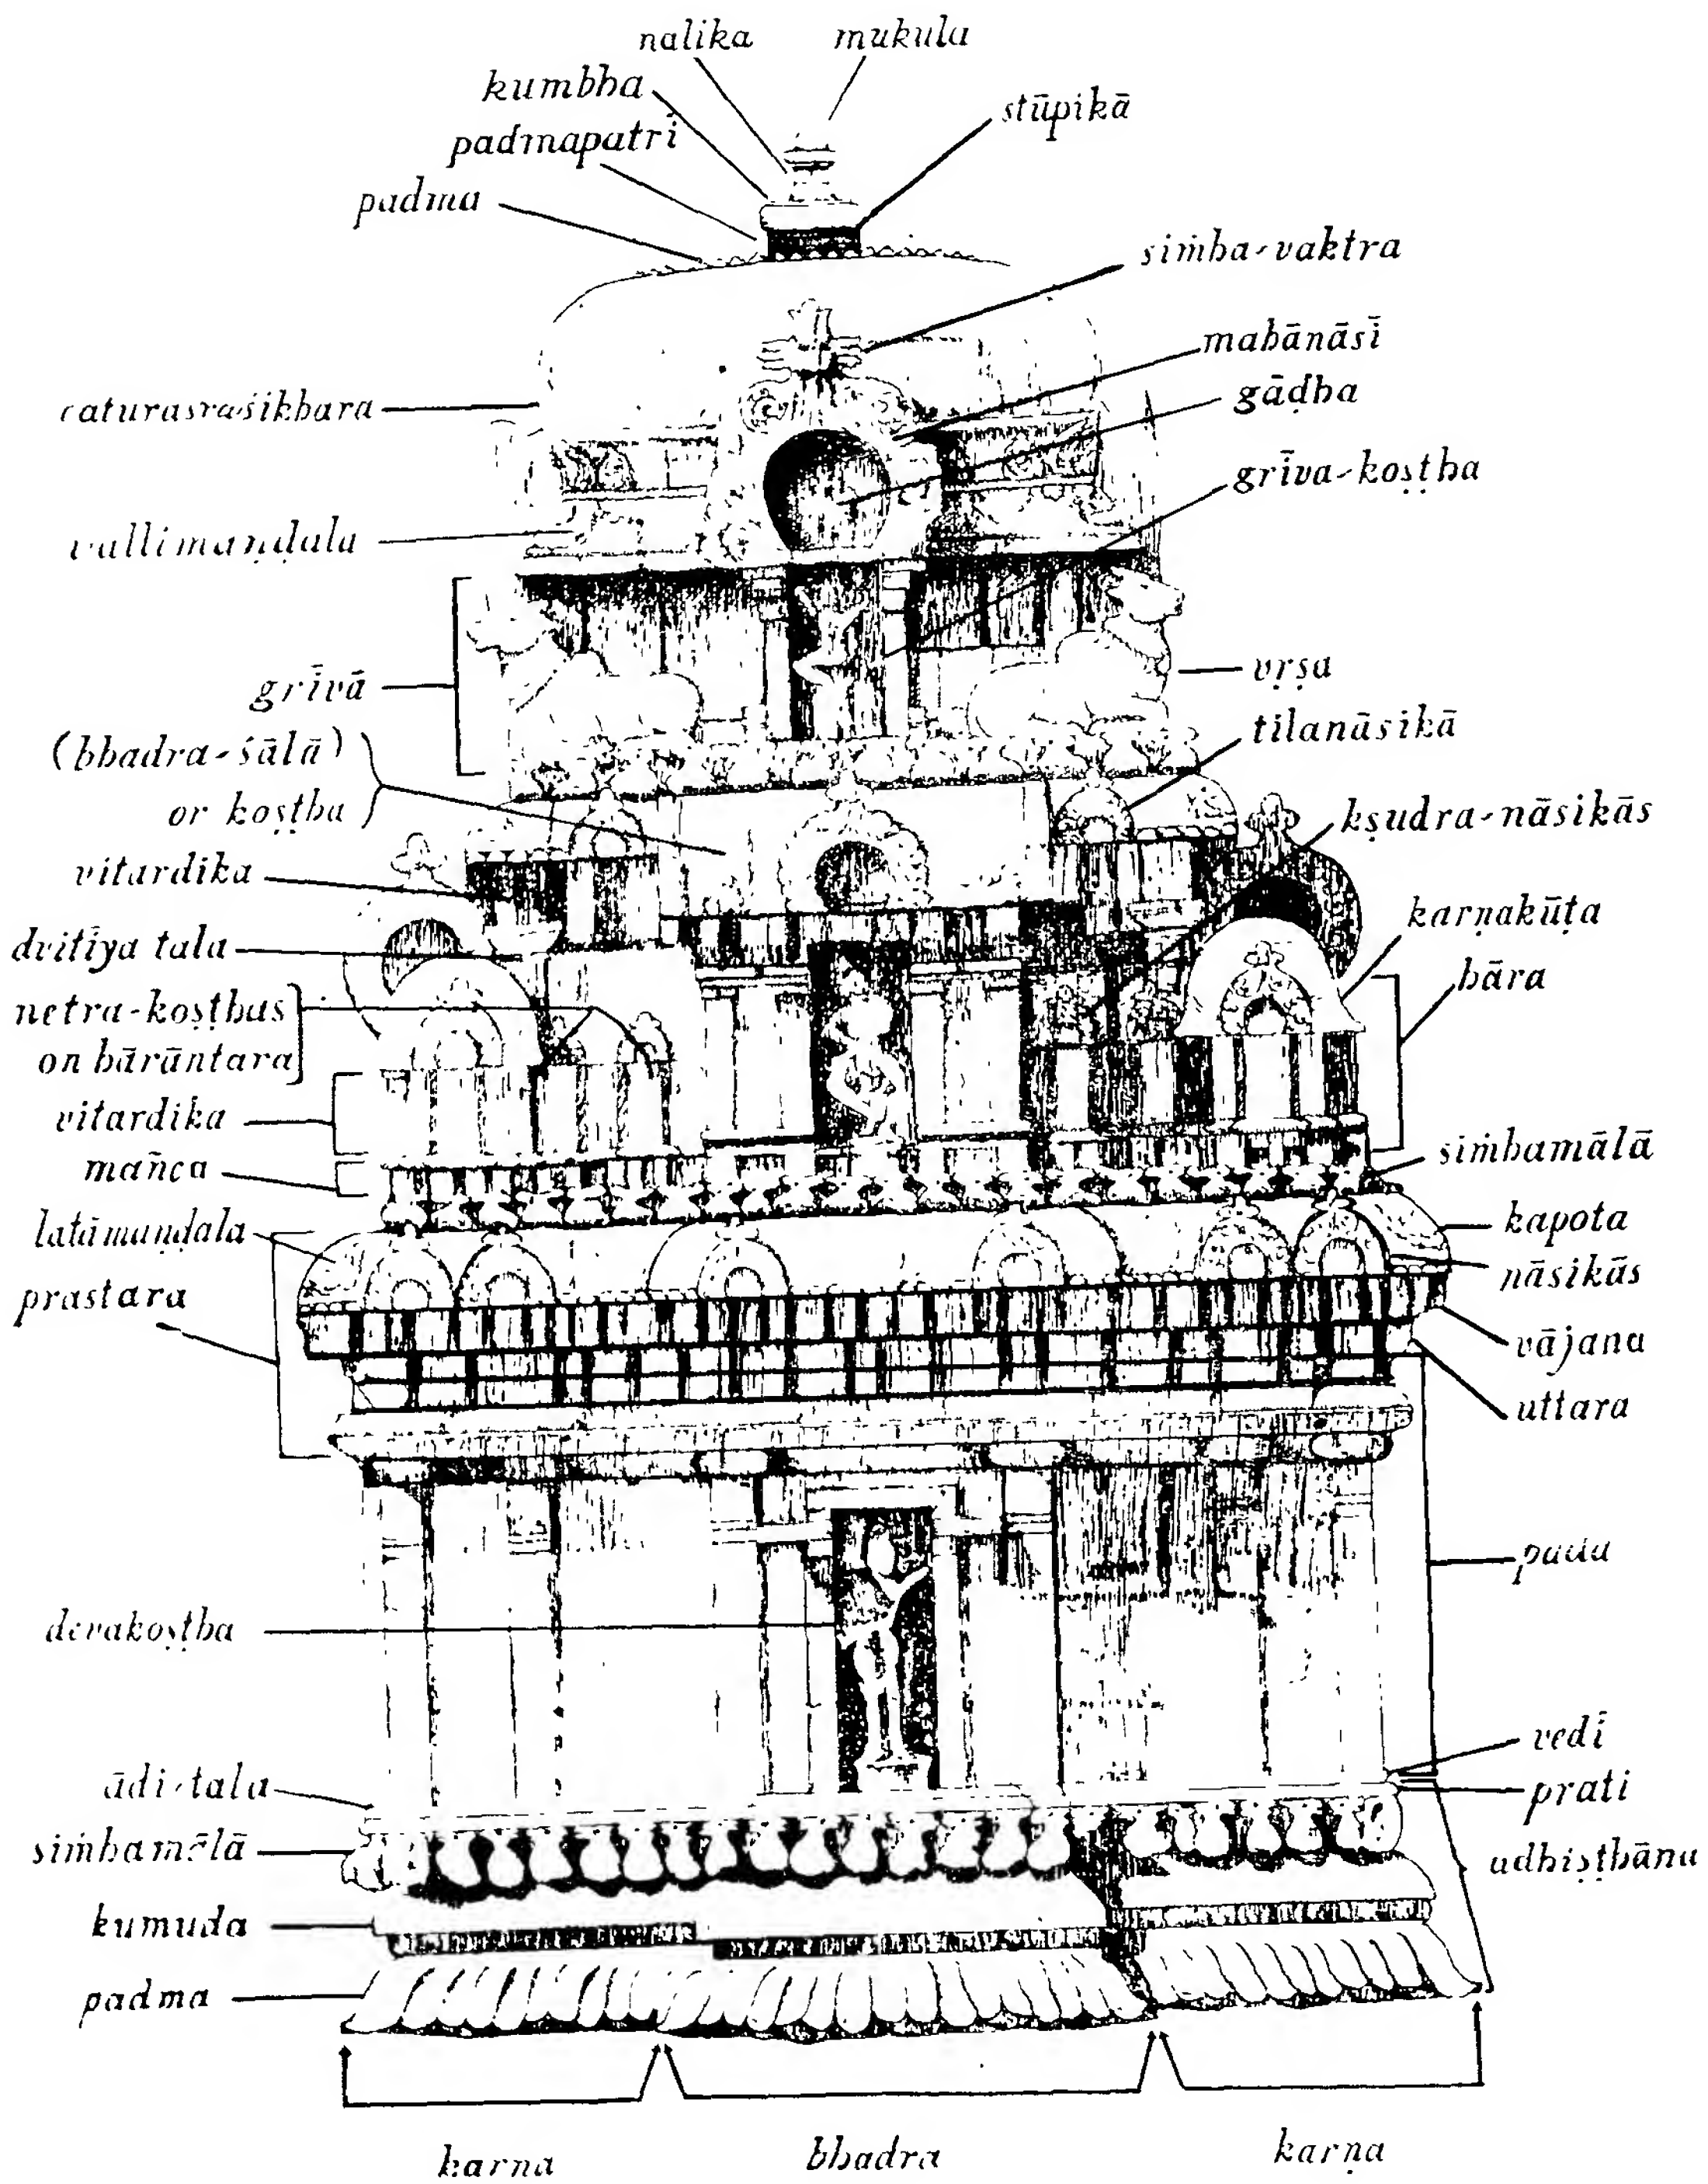 nalika
mukula
kumbha
stūpikā
padmapatrī
padma
siṁha-vaktra
mahānāsī
gāḍha
caturasra-śikhara
grīva-koṣṭha
vallimaṇḍala
grīvā
vṛṣa
(bhadra-śālā)
or koṣṭha
tilanāsikā
kṣudra-nāsikās
vitardika
karṇakūṭa
dvitīya tala
hāra
netra-koṣṭhas
on hārāntara
vitardika
mañca
siṁhamālā
latāmaṇḍala
kapota
prastara
nāsikās
vājana
uttara
devakoṣṭha
vedī
ādi-tala
prati
siṁhamālā
adhiṣṭhāna
kumuda
padma
karna
bhadra
karṇa